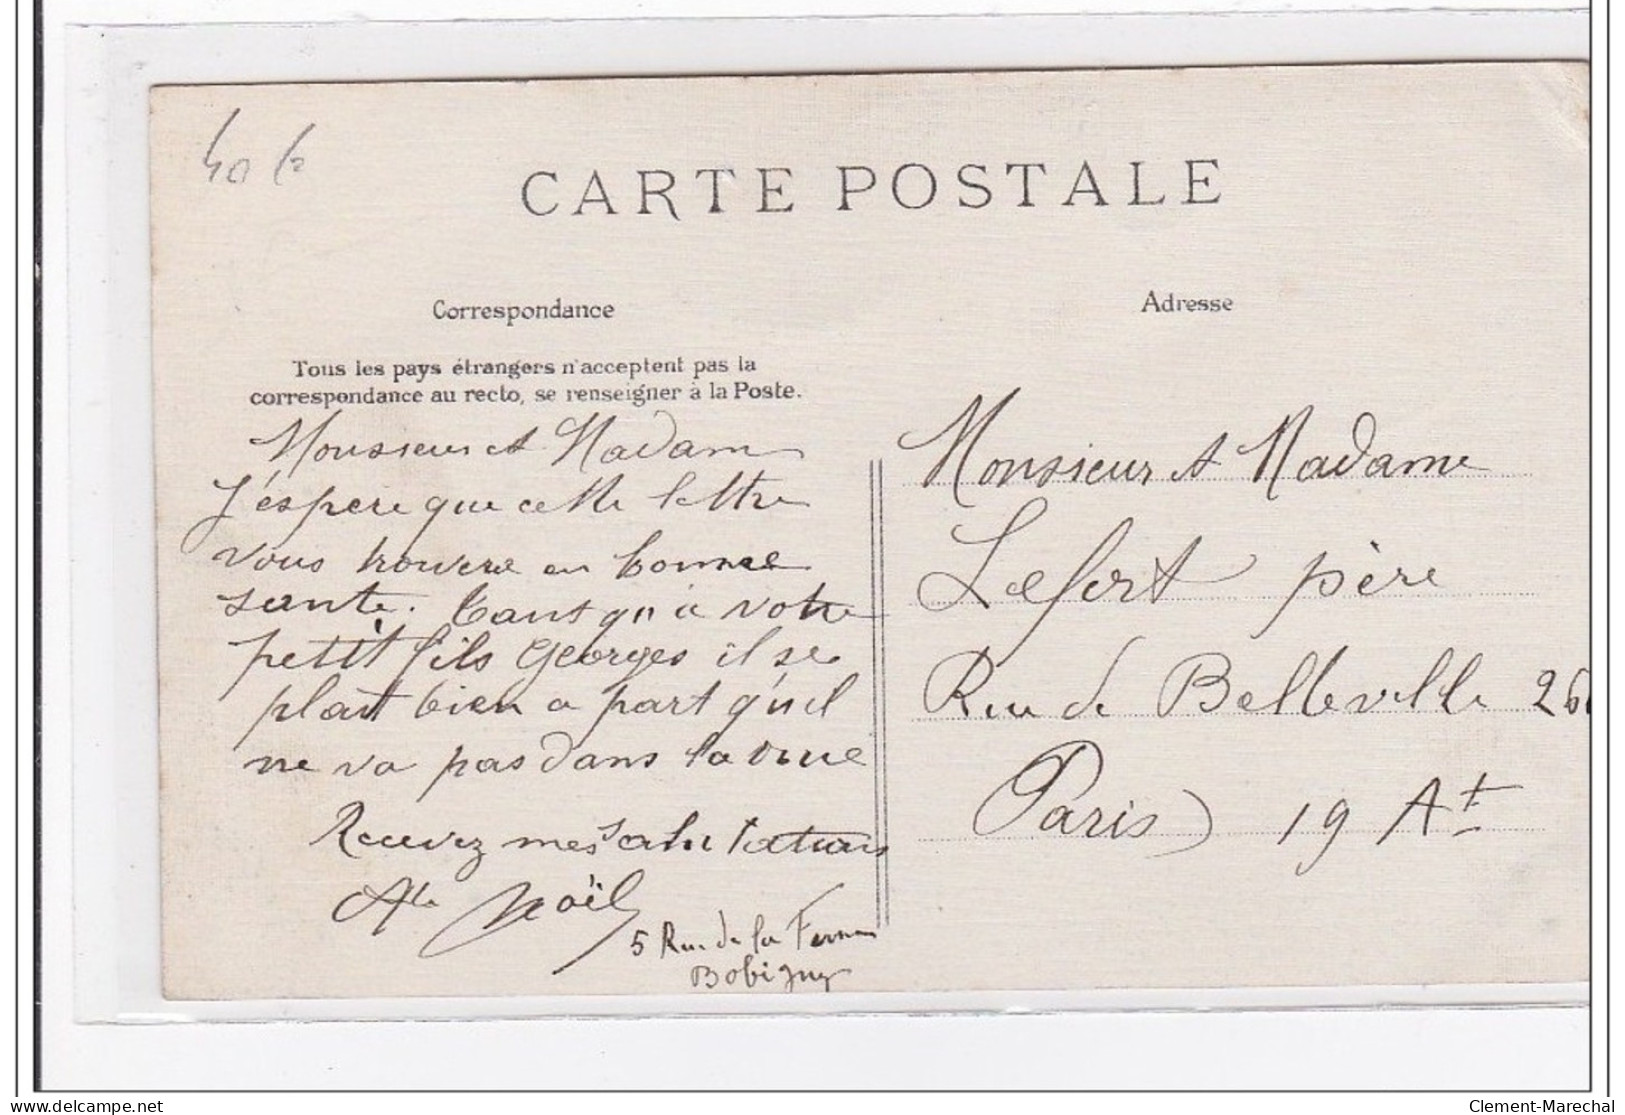 CARTE POSTALE
Correspondance
Tous les pays étrangers n'acceptent pas la
correspondance au recto, se renseigner à la Poste.
Monsieur et Madame
J'éspere que cette lettre
vous trouvera en bonne
sante. Tant qu'a votre
petit fils Georges il se
plait bien a part qu'il
ne va pas dans la
Recevez mes salutations
Noël
5 Rue de la Ferme
Bobigny
Adresse
Monsieur et Madame
Lefort père
Rue de Belleville 26
Paris 19 At
Clement-Marechal